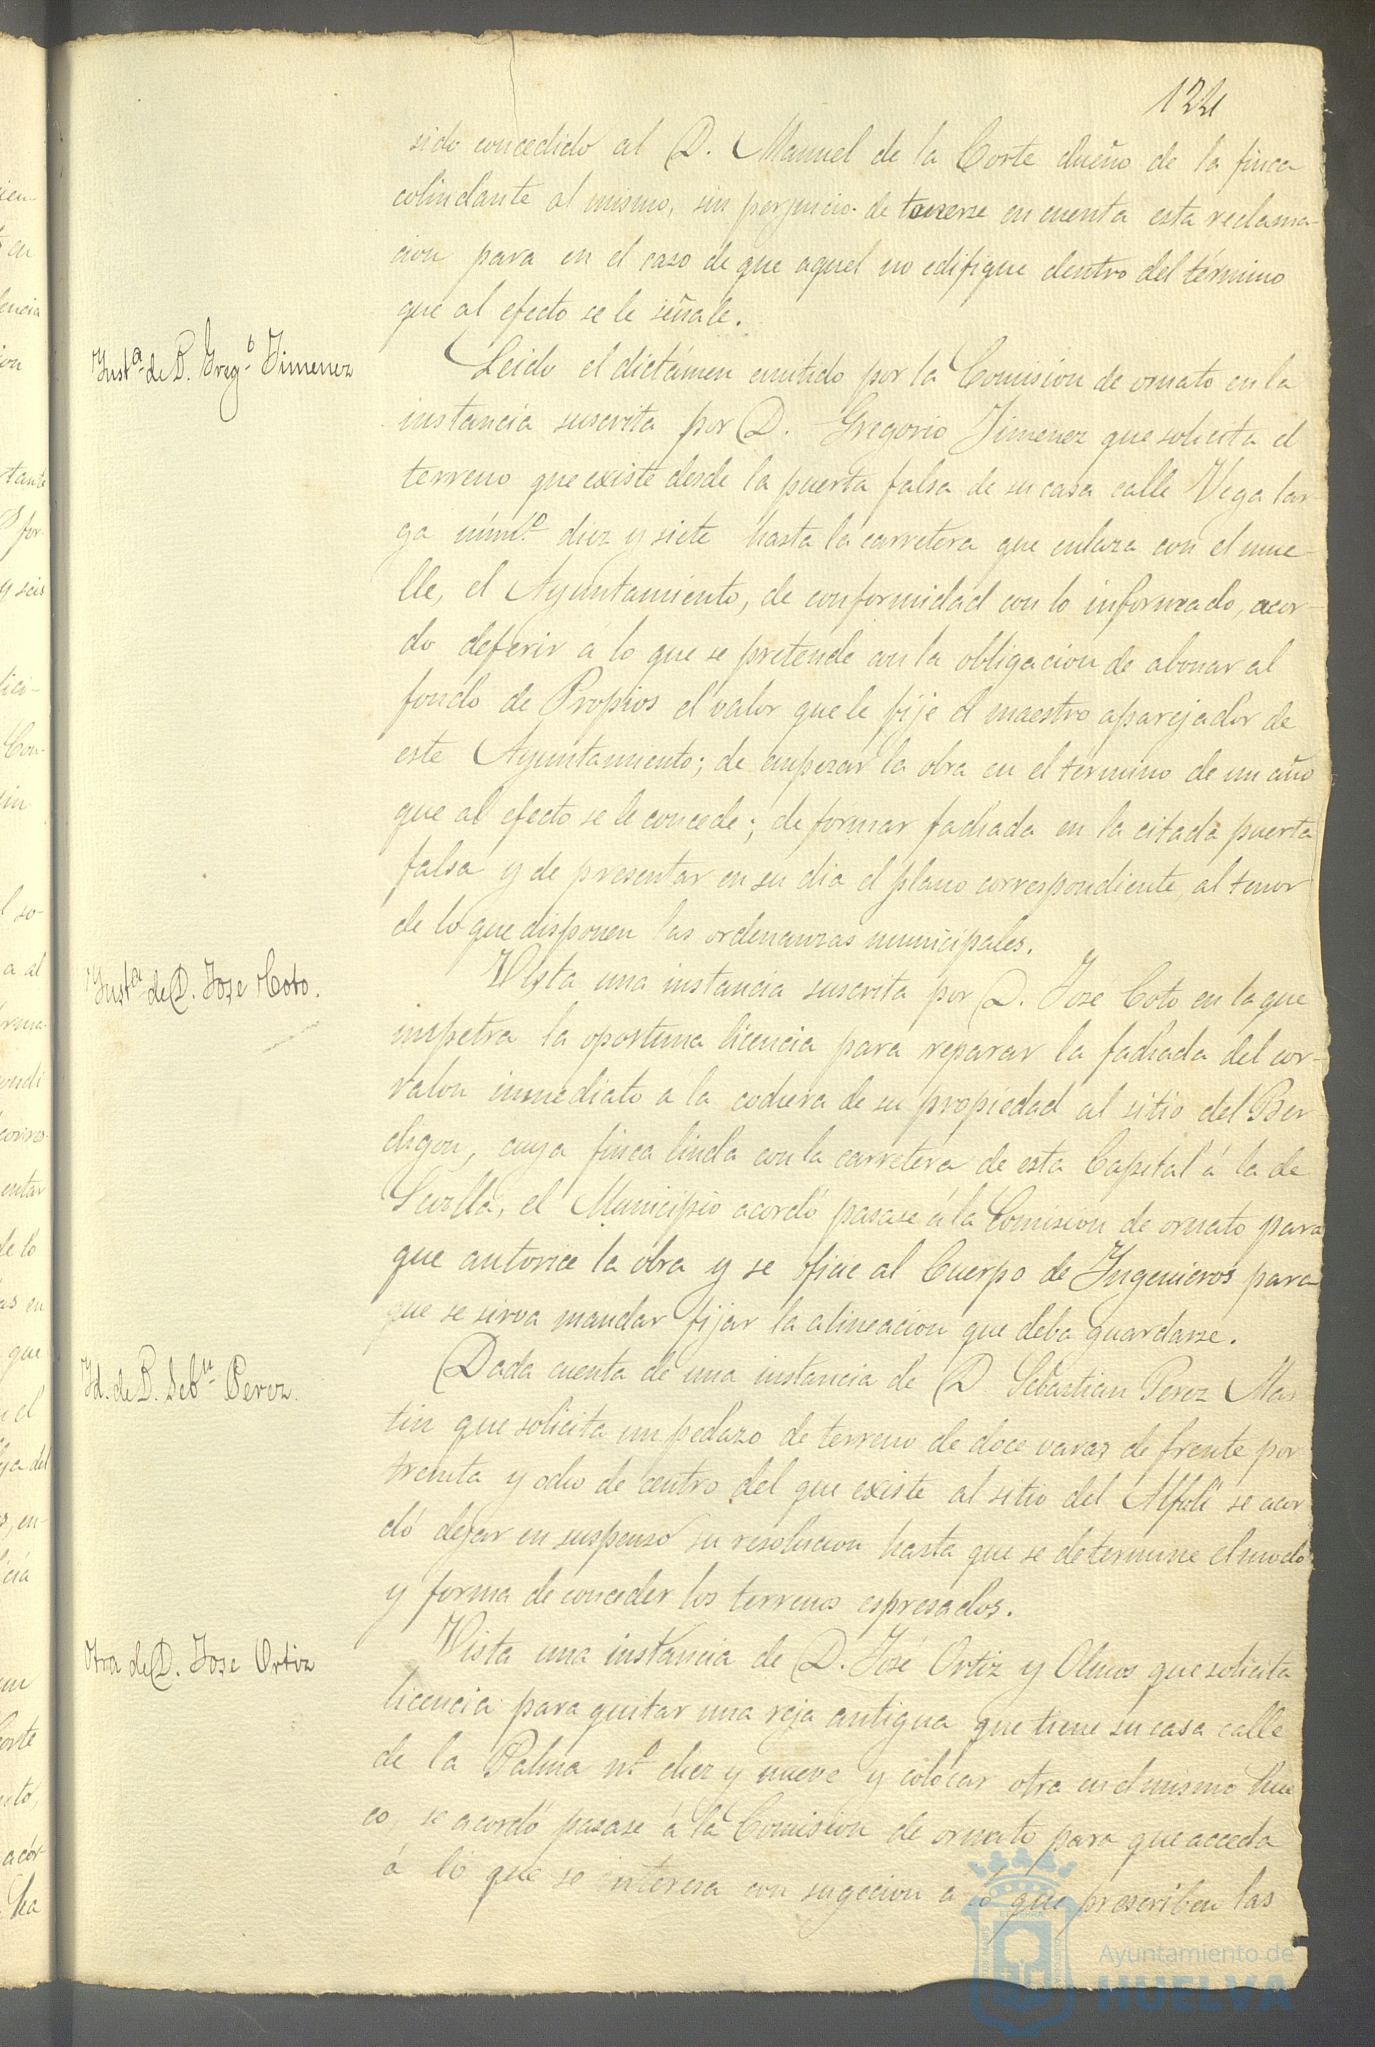 122
sido concedido al D. Manuel de la Corte dueño de la finca
colindante al mismo, sin perjuicio de tenerse en cuenta esta reclama-
cion para en el caso de que aquel no edifique dentro del término
que al efecto se le señale.
Inst.ª de D. Greg.º Jimenez
Leido el dictámen emitido por la Comision de ornato en la
instancia suscrita por D. Gregorio Jimenez que solicita el
terreno que existe desde la puerta falsa de su casa calle Vega lar-
ga núm.º diez y siete hasta la carretera que enlaza con el mue-
lle, el Ayuntamiento, de conformidad con lo informado, acor-
do deferir á lo que se pretende con la obligacion de abonar al
fondo de Propios el valor que le fije el maestro aparejador de
este Ayuntamiento; de empezar la obra en el término de un año
que al efecto se le concede; de formar fachada en la citada puerta
falsa y de presentar en su dia el plano correspondiente, al tenor
de lo que disponen las ordenanzas municipales.
Inst.ª de D. Jose Coto.
Vista una instancia suscrita por D. José Coto en la que
impetra la oportuna licencia para reparar la fachada del cor-
ralon inmediato a la cochera de su propiedad al sitio del Ber-
digon, cuya finca linda con la carretera de esta Capital á la de
Sevilla, el Municipio acordó pasase á la Comision de ornato para
que autorice la obra y se oficie al Cuerpo de Ingenieros para
que se sirva mandar fijar la alineacion que deba guardarse.
Id. de D. Seb.n Perez.
Dada cuenta de una instancia de D Sebastian Perez Mar-
tin que solicita un pedazo de terreno de doce varas de frente por
treinta y ocho de centro del que existe al sitio del Alfolí se acor
dó dejar en suspenso su resolucion hasta que se determine el modo
y forma de conceder los terrenos espresados.
Otra de D. Jose Ortiz
Vista una instancia de D. José Ortiz y Olmos que solicita
licencia para quitar una reja antigua que tiene su casa calle
de la Palma n.º diez y nueve y colocar otra en el mismo hue
co se acordó pasase á la Comision de ornato para que acceda
á lo que se interesa con sugecion a lo que prescriben las
Ayuntamiento de
HUELVA